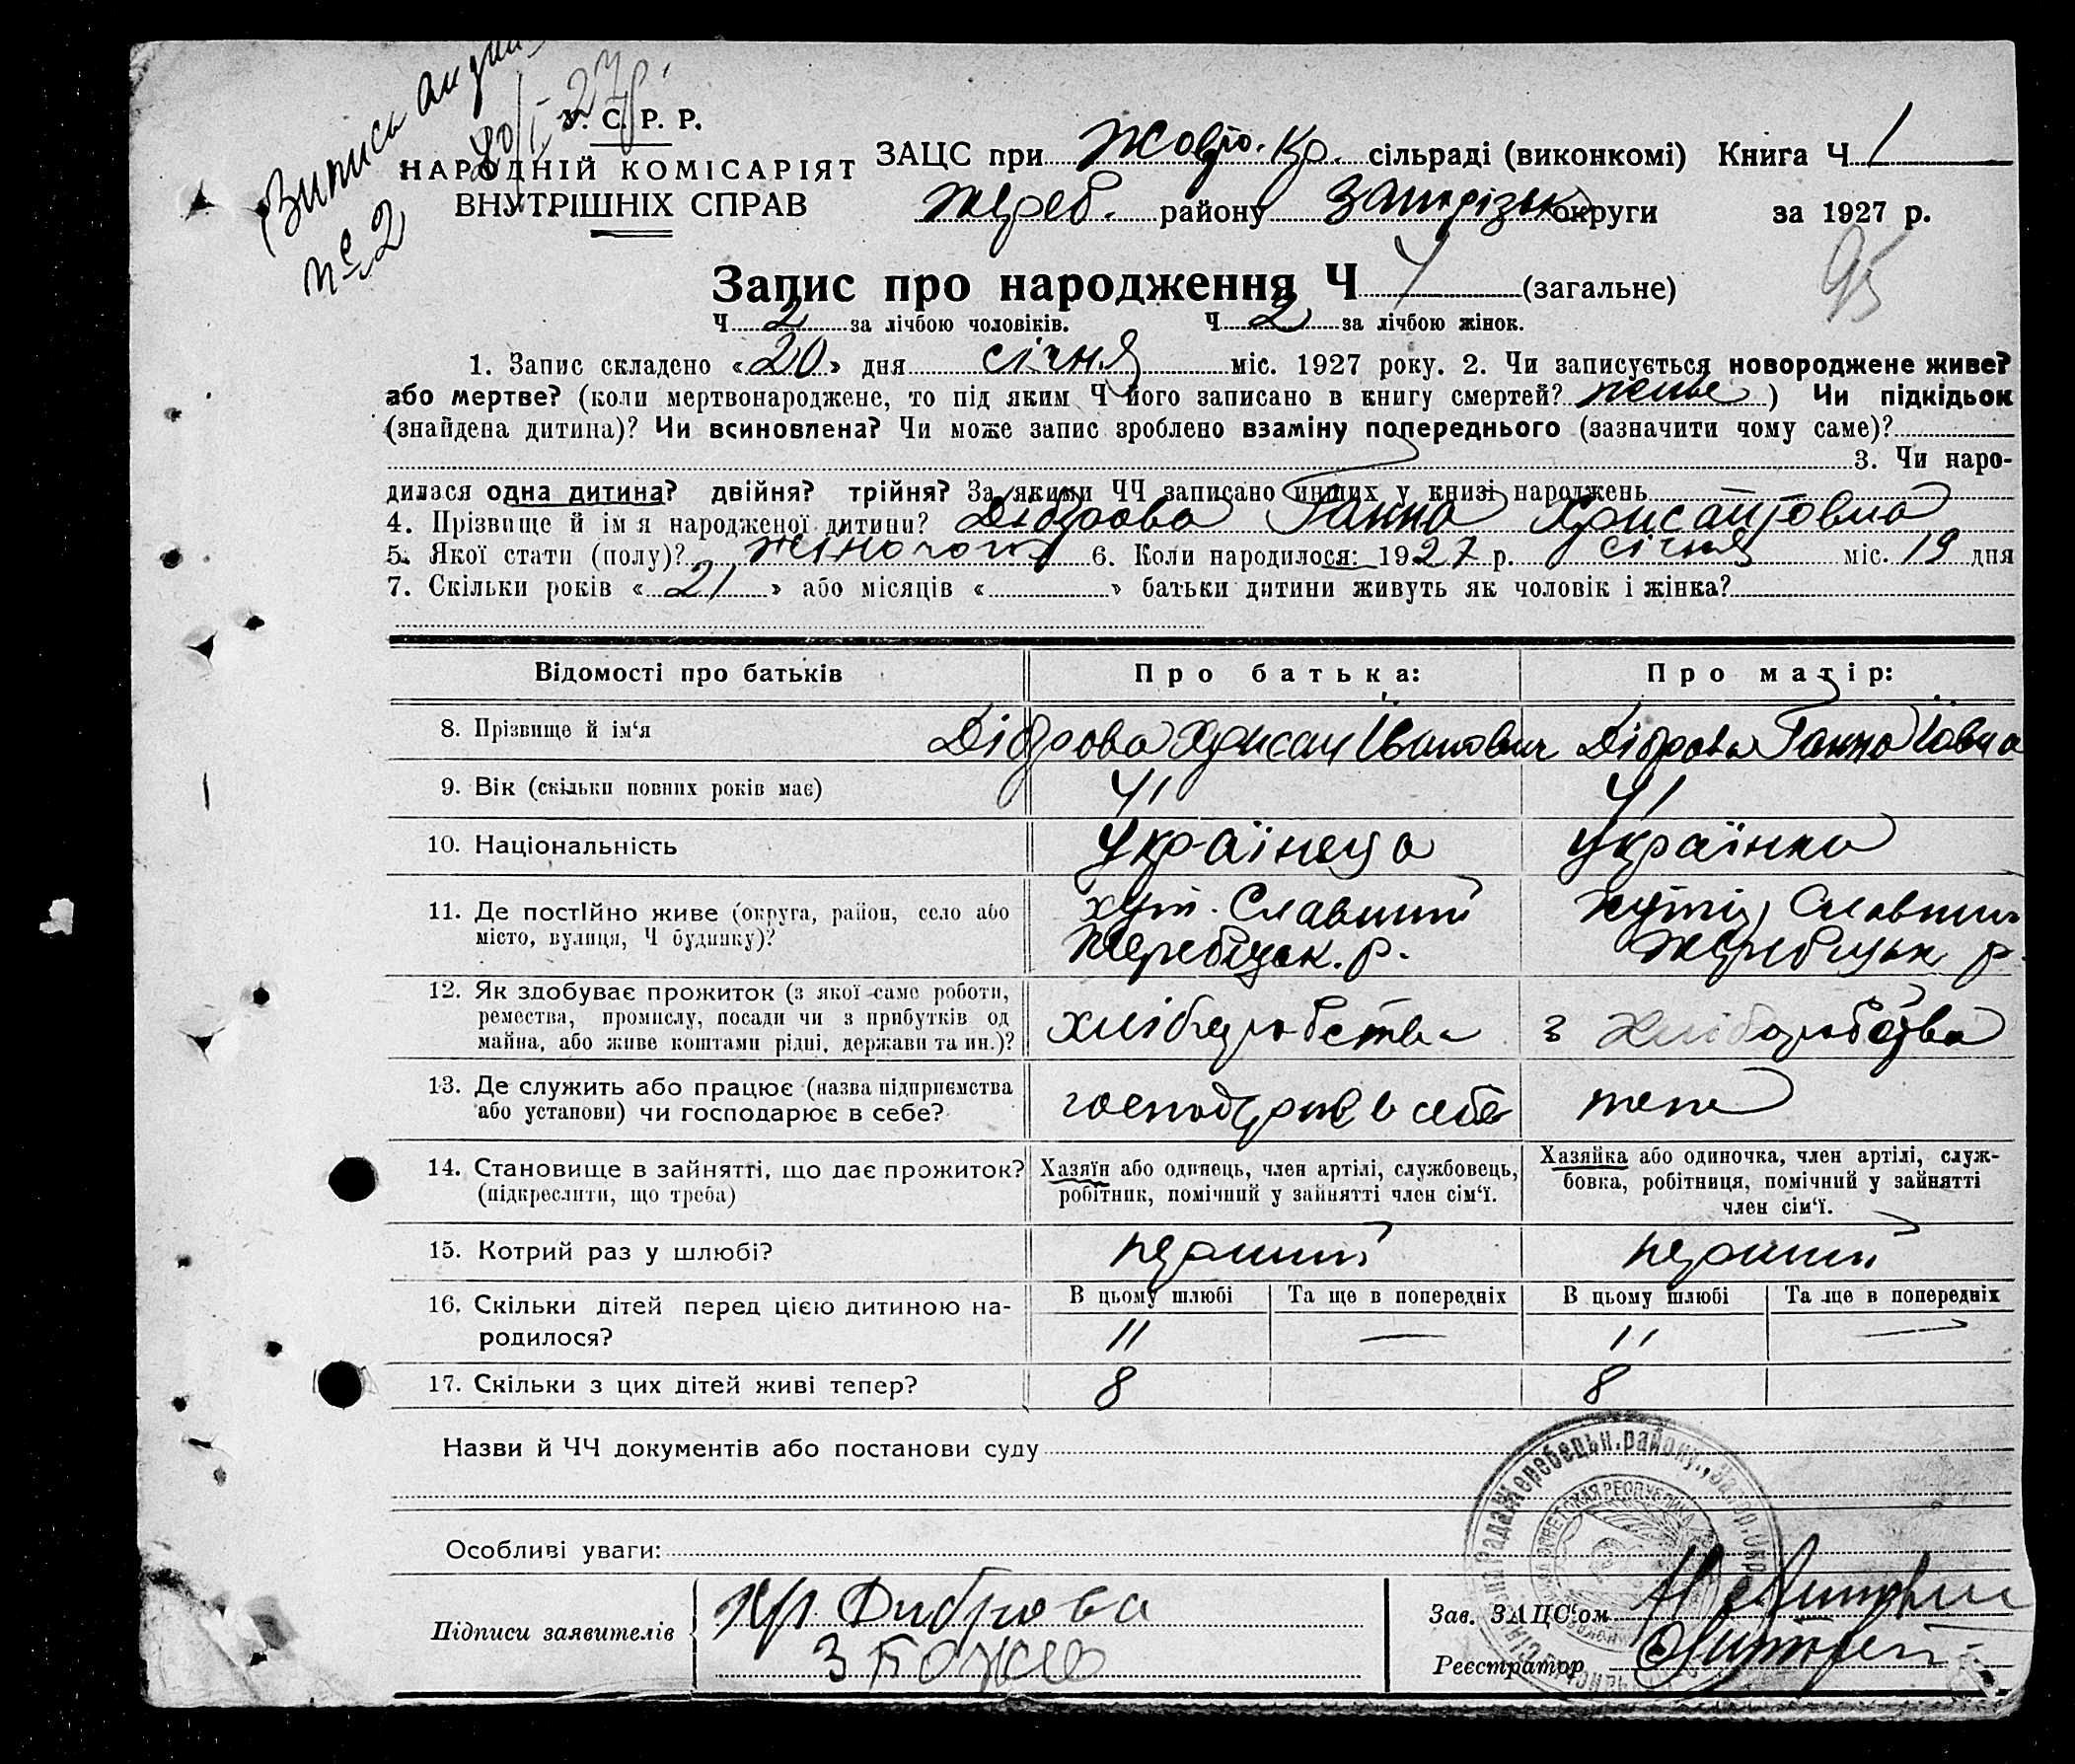 Випись видан
20/I-27р.
№ 2
У. С. Р. Р.
НАРОДНІЙ КОМІСАРІЯТ
ВНУТРІШНІХ СПРАВ
ЗАЦС при Жовто.-Кр. сільраді (виконкомі) Книга Ч 1
Жереб. району Запорізьк округи за 1927 р.
95
Запис про народження Ч 4 (загальне)
Ч 2 за лічбою чоловіків. Ч 2 за лічбою жінок.
1. Запис складено «20» дня січня міс. 1927 року. 2. Чи записується новороджене живе?
або мертве? (коли мертвонароджене, то під яким Ч його записано в книгу смертей? ) Чи підкідьок
(знайдена дитина)? Чи всиновлена? Чи може запис зроблено взаміну попереднього (зазначити чому саме)?
3. Чи наро-
дилася одна дитина? двійня? трійня? За якими ЧЧ записано инших у книзі народжень —
4. Прізвище й ім я народженої дитини? Діброва Ганна Хрисантовна
5. Якої стати (полу)? жіночого 6. Коли народилося: 1927 р. січня міс. 19 дня
7. Скільки років «21» або місяців « » батьки дитини живуть як чоловік і жінка?
Відомості про батьків Про батька: Про матір:
8. Прізвище й ім‘я Діброва Хрисан Іванович Діброва Ганна Іовна
9. Вік (скільки повних років має) 41 41
10. Національність Українець Українка
11. Де постійно живе (округа, район, село або
місто, вулиця, Ч будинку)?
хут. Славний
Жеребецьк. р.
хутір Славний
Жеребецьк р.
12. Як здобуває прожиток (з якої саме роботи,
ремества, промислу, посади чи з прибутків од
майна, або живе коштами рідні, держави та ин.)?
хліборобства з хліборобства
13. Де служить або працює (назва підприємства
або установи) чи господарює в себе?
господарює в себе теж
14. Становище в зайнятті, що дає прожиток?
(підкреслити, що треба)
Хазяїн або одинець, член артілі, службовець,
робітник, помічний у зайнятті член сім‘ї.
Хазяйка або одиночка, член артілі, служ-
бовка, робітниця, помічний у зайнятті
член сім‘ї.
15. Котрий раз у шлюбі? перший перший
16. Скільки дітей перед цією дитиною на-
родилося?
В цьому шлюбі Та ще в попередніх В цьому шлюбі Та ще в попередніх
11 — 11 —
17. Скільки з цих дітей живі тепер? 8 8
Назви й ЧЧ документів або постанови суду
Особливі уваги:
Підписи заявителів
Хр. Диброва
Зав. ЗАЦС‘ом
Реєстратор
Рада Жеребецьк. району, Запор. Окр.